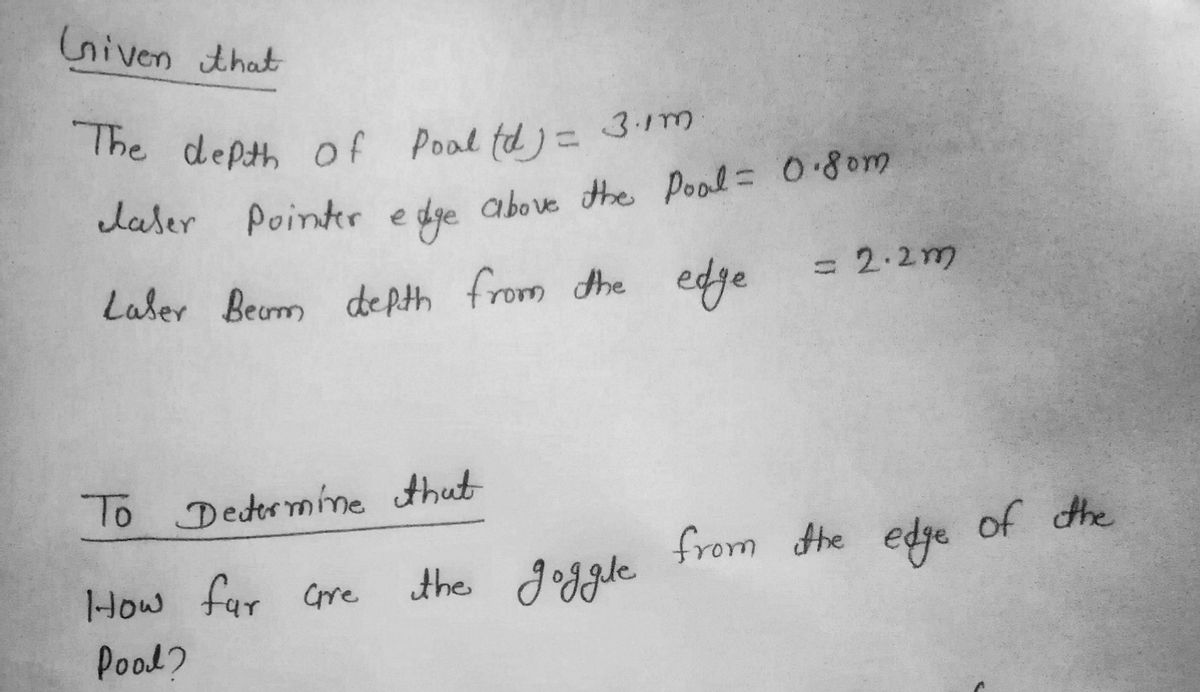 Given that
The depth of Pool (d) = 3.1m
laser Pointer edge above the Pool = 0.80m
Laser Beam depth from the edge = 2.2m
To Determine that
How far are the goggle from the edge of the
Pool?